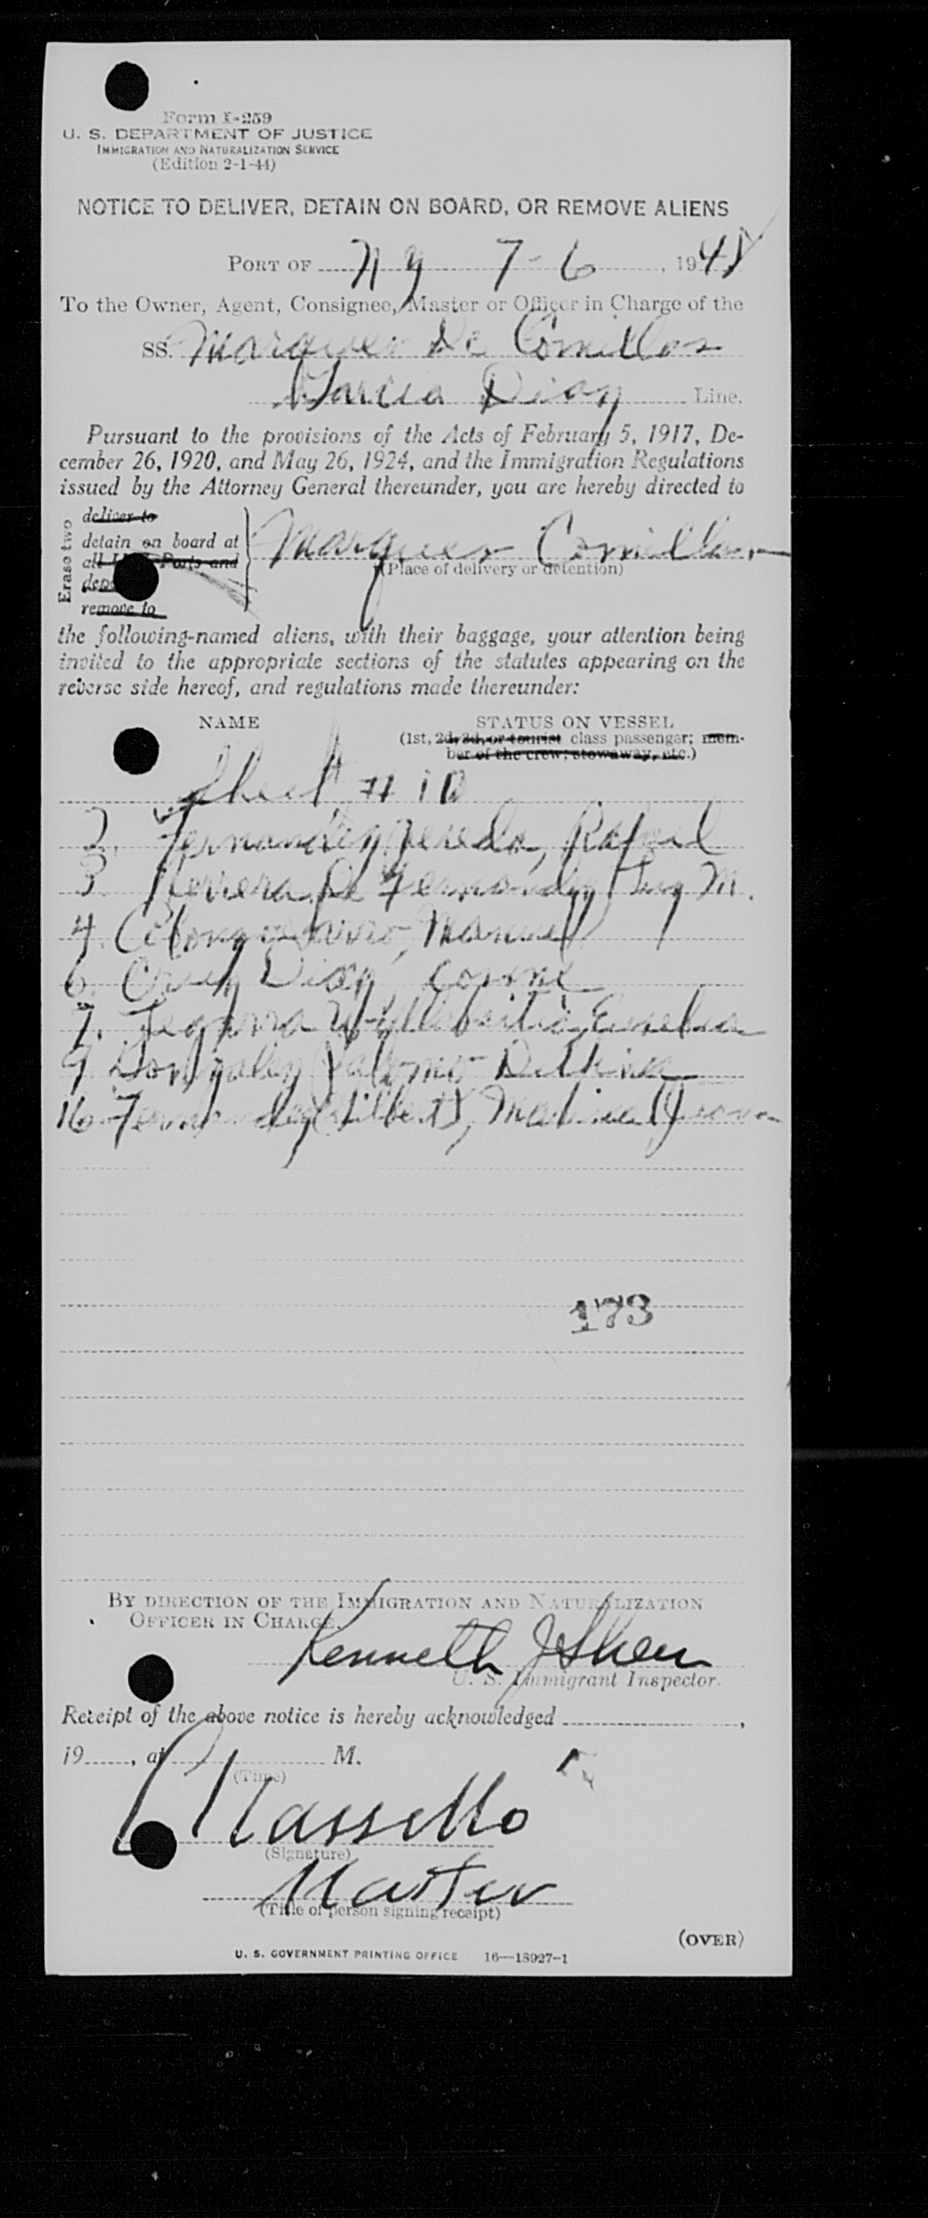 Form I-259
U. S. DEPARTMENT OF JUSTICE
IMMIGRATION AND NATURALIZATION SERVICE
(Edition 2-1-44)
NOTICE TO DELIVER, DETAIN ON BOARD, OR REMOVE ALIENS
PORT OF NY 7-6, 1948
To the Owner, Agent, Consignee, Master or Officer in Charge of the
SS. Marques De Comillas
Garcia Diaz Line.
Pursuant to the provisions of the Acts of February 5, 1917, De-
cember 26, 1920, and May 26, 1924, and the Immigration Regulations
issued by the Attorney General thereunder, you are hereby directed to
Erase two
deliver to
detain on board at
all U. S. Ports and
remove to
Marques Comillas
(Place of delivery or detention)
the following-named aliens, with their baggage, your attention being
invited to the appropriate sections of the statutes appearing on the
reverse side hereof, and regulations made thereunder:
NAME STATUS ON VESSEL
(1st, 2d, 3d, or tourist class passenger; mem-
ber of the crew; stowaway, etc.)
Sheet # 10
2. Fernandez Rafael
3 Herrera De Fernandez M.
4. Manuel
6. Diaz
7.
9 Gonzalez
16 Fernandez
173
BY DIRECTION OF THE IMMIGRATION AND NATURALIZATION
OFFICER IN CHARGE.
Kenneth J Shea
U. S. Immigrant Inspector.
Receipt of the above notice is hereby acknowledged ,
19 , at M.
(Time)
(Signature)
Master
(Title of person signing receipt)
(OVER)
U. S. GOVERNMENT PRINTING OFFICE 16—18927-1